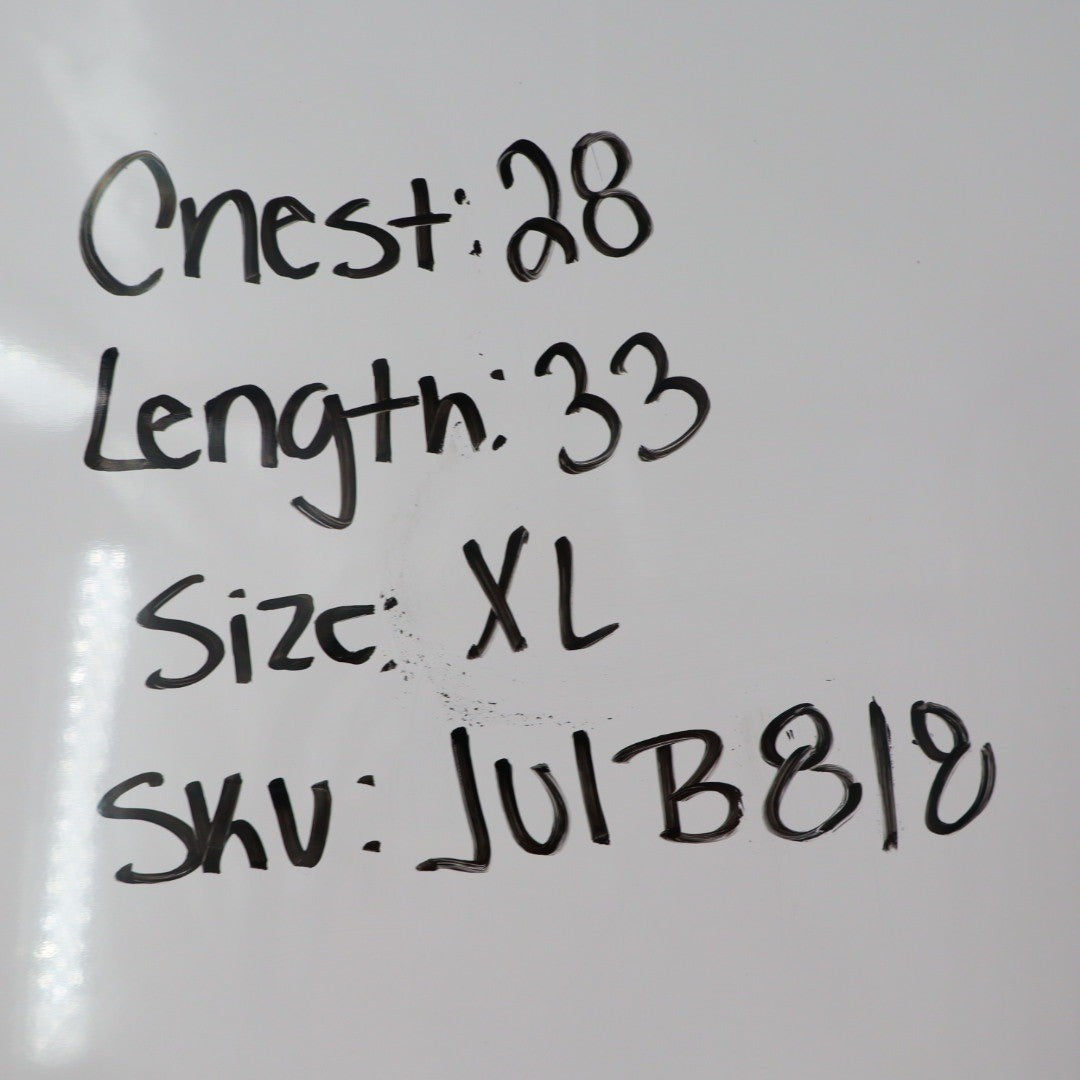 Chest: 28
Length: 33
Size: XL
SKU: JUlB818